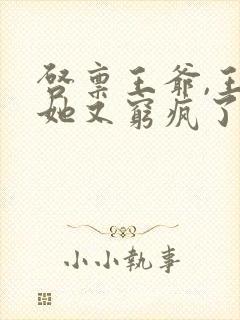 啓稟王爺,王
她又窮瘋了
小小執事